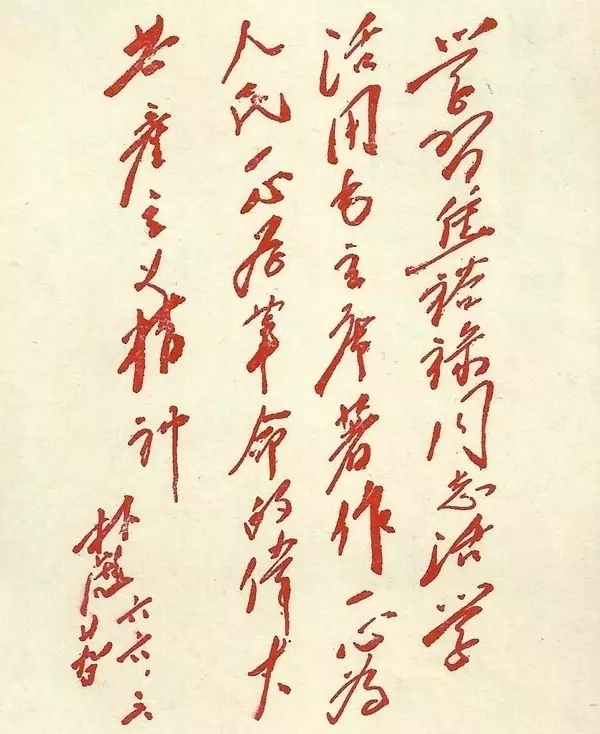 学習焦裕禄同志活学
活用毛主席著作一心為
人民一心为革命的偉大
共產主义精神
六六.六